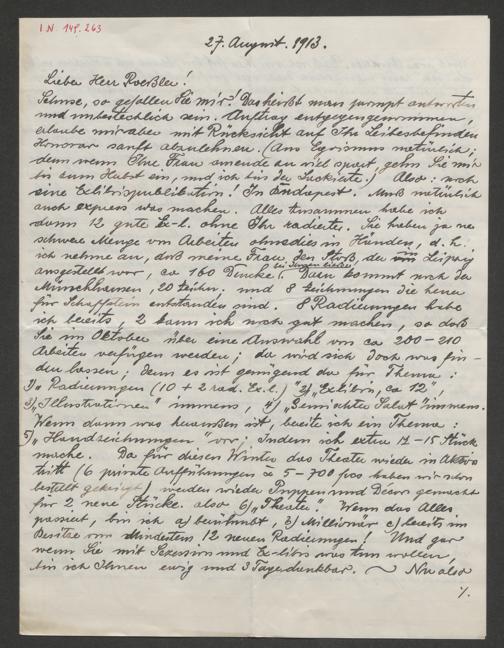 I.N. 149.263
27. August. 1913.
Lieber Herr Roeßler!
Sehnse, so gefallen Sie mir! Das heißt man prompt antworten
und unbestechlich sein. Auftrag entgegengenommen,
erlaube mir aber mit Rücksicht auf Ihr Leibesbefinden
Honorar sanft abzulehnen. (Aus Egoismus natürlich;
denn wenn Ihre Frau amende an viel spart, gehn Sie mir
bis zum Halse ein, und ich bin der Lackierte!) Also: noch
eine Exlibrispublikation! In Budapest. Muß natürlich
auch express was machen. Alles zusammen habe ich
dann 12 gute Ex-l. ohne Ihr radiertes. Sie haben ja ne
schwere Menge von Arbeiten ohnedies in Händen, d. h.
ich nehme an, daß meine Frau den Stoß, der in Leipzig
ausgestellt war, ca 160 Drucke! Dazu kommt noch der
Münchhausen, 20 Zeichn. und 8 Zeichnungen die heuer
für Schaffstein entstanden sind. 8 Radierungen habe
ich bereits, 2 kann ich noch gut machen, so daß
Sie im Oktober über eine Auswahl von ca 200-210
Arbeiten verfügen werden; da wird sich doch was fin-
den lassen; denn es ist genügend da für Thema:
1) „Radierungen (10 + 2 rad. Ex. l.)" 2) „Exlibris, ca 12",
3) „Illustrationen" immens, 4) „Gemischter Salat" immens.
Wenn dann was heraußen ist, bereite ich ein Thema:
5) „Handzeichnungen" vor; indem ich extra 12-15 Stück
mache. Da für diesen Winter das Theater wieder in Aktion
tritt (6 private Aufführungen à 5-700 fcs haben wir schon
bestellt gekriegt) werden wieder Puppen und Decors gemacht
für 2 neue Stücke. also 6) „Theater". Wenn das Alles
passiert, bin ich a) berühmt, b) Millionär c) bereits im
Besitze von mindestens 12 neuen Radierungen! Und gar
wenn Sie mit Sezession und Ex-libris was tun wollen,
bin ich Ihnen ewig und 3 Tage dankbar. ~ Nu also
/.